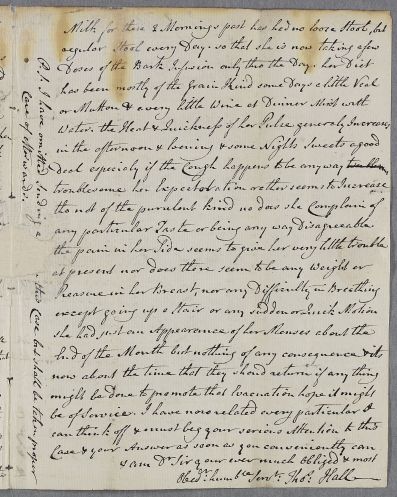 Milk for these 2 Mornings past has had no loose Stool, but
regular Stool every Day. so that she is now taking a few
Doses of the Bark Infusion only thro the Day. her Diet
has been mostly of the Grain Kind some Days a little Veal
or Mutton & every little Wine at Dinner Mixt with
Water. the Heat & Quickness of her Pulse generaly Increases
in the afternoon & Evening & some Nights Sweets a good
Deal especialy if the Cough happens to be any way
troublesome her Expectoration rather seems to Increase
tho not of the purulent kind no does she Complain of
any particular Taste or being any way Disagreeable
the pain in her Side seems to give her very little trouble
at present nor does there seem to be any Weight or
Pressure in her Breast, nor any Difficulty in Breathing
except going up a Stair or any sudden or Quick Motion
she had just an Appearance of her Menses about the
End of the Month but nothing of any consequence & its
now about the time that they should return if any thing
might be done to promote that Evacuation hope it might
be of Service. I have now related every particular I
can think off & must beg your serious Attention to this
Case & your Answer as soon as you conveniently can
& am Dr. Sir your ever much Obliged & most
Obedt. humble Servt. Thos. Hall
P.S. I have omitted sending a
this Case but shall be taken proper
Care of afterwards.